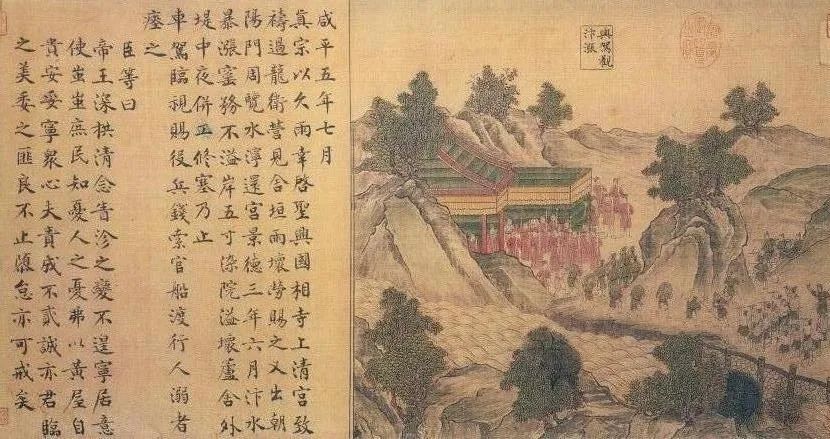 輿駕觀
汴漲
咸平五年七月
真宗以久雨幸啓聖興國相寺上清宮致
禱過龍衛營見舍垣雨壞勞賜之又出朝
陽門周覽水濘還宮景德三年六月汴水
暴漲窰務不溢岸五寸染院溢壞廬舍外
堤中夜併工修塞乃止
車駕臨視賜役兵錢索官船渡行人溺者
瘞之
臣等曰
帝王深拱清念眚沴之變不遑寧居意
使蚩蚩庶民知憂人之憂弗以黃屋自
貴安妥寧衆心夫責成不貳誠亦君臨
之美委之匪良不止滋怠亦可戒矣